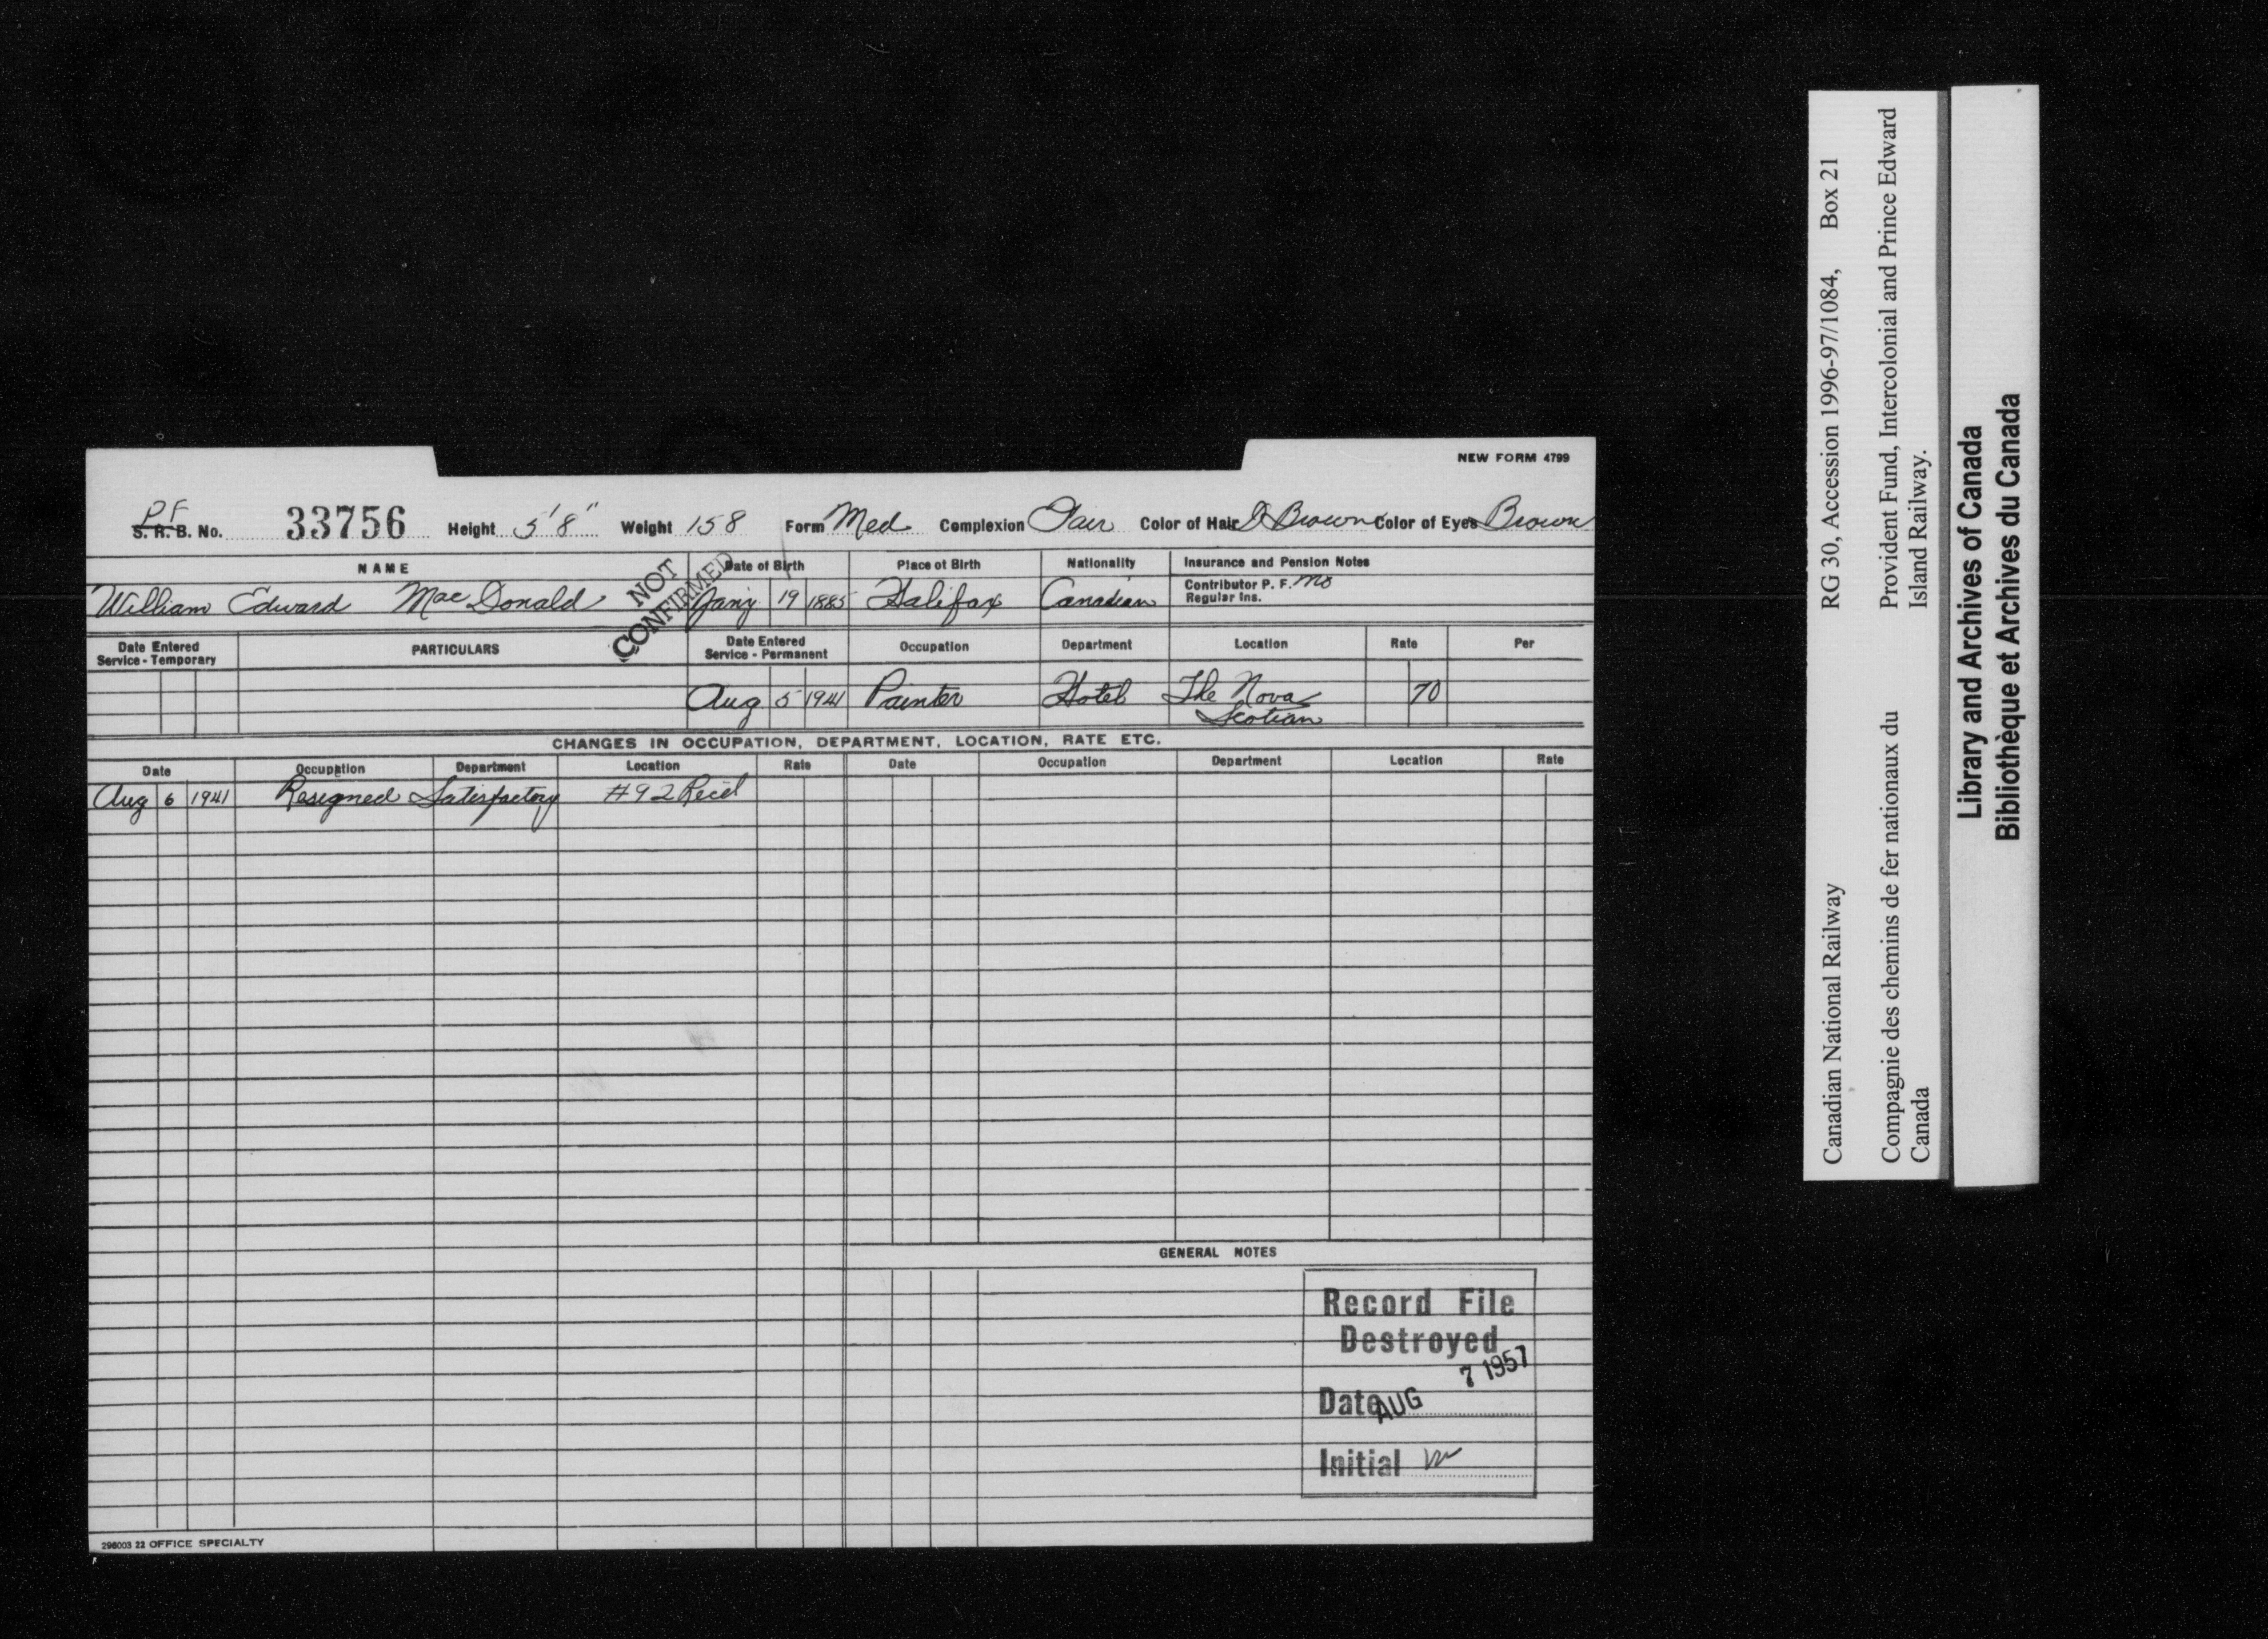 NEW FORM 4799
PF
S. R. B. No. 33756 Height 5'8" Weight 158 Form Med Complexion Fair Color of Hair D Brown Color of Eyes Brown
NAME Date of Birth Place of Birth Nationality Insurance and Pension Notes
NOT CONFIRMED
Contributor P. F. No
Regular Ins.
William Edward MacDonald Jany 19 1885 Halifax Canadian
Date Entered Service - Temporary PARTICULARS Date Entered Service - Permanent Occupation Department Location Rate Per
Aug 5 1941 Painter Hotel The Nova Scotian 70
CHANGES IN OCCUPATION, DEPARTMENT, LOCATION, RATE ETC.
Date Occupation Department Location Rate Date Occupation Department Location Rate
Aug 6 1941 Resigned Satisfactory #92 Recd
GENERAL NOTES
Record File
Destroyed
Date AUG 7 1957
Initial
296003 22 OFFICE SPECIALTY
Canadian National Railway RG 30, Accession 1996-97/1084, Box 21
Compagnie des chemins de fer nationaux du Canada
Provident Fund, Intercolonial and Prince Edward Island Railway.
Library and Archives of Canada
Bibliothèque et Archives du Canada